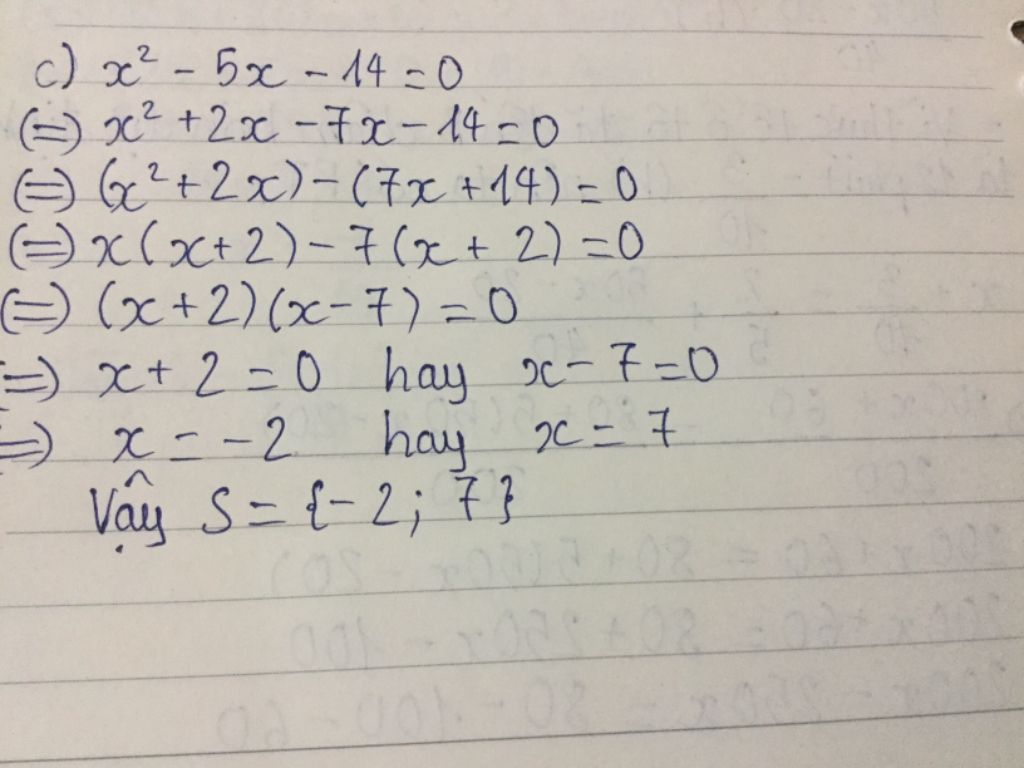 c) x² - 5x - 14 = 0
(=) x² + 2x - 7x - 14 = 0
(=) (x² + 2x) - (7x + 14) = 0
(=) x(x + 2) - 7(x + 2) = 0
(=) (x + 2)(x - 7) = 0
=) x + 2 = 0 hay x - 7 = 0
=) x = -2 hay x = 7
Vậy S = {-2; 7}